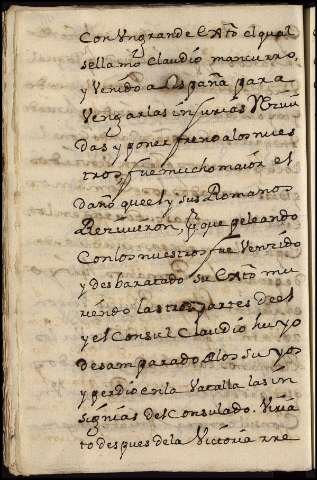 Con Vngrande exto el qual
sellamo Claudio mancurro,
y Venido a España para
Vengar las injurias Rezeui
das y poner freno alos nues
tros, fue mucho maior el
daño que el y sus Romanos
Rezeuieron, Porque peleando
Con los nuestros fue Venzido
y desbaratado su exto mu
riendo las tres partes de el
y el Consul Claudio huyo
desamparado alos suyos
y perdio en la Vatalla las in
signias del Consulado. Viria
to despues dela Victoria rre